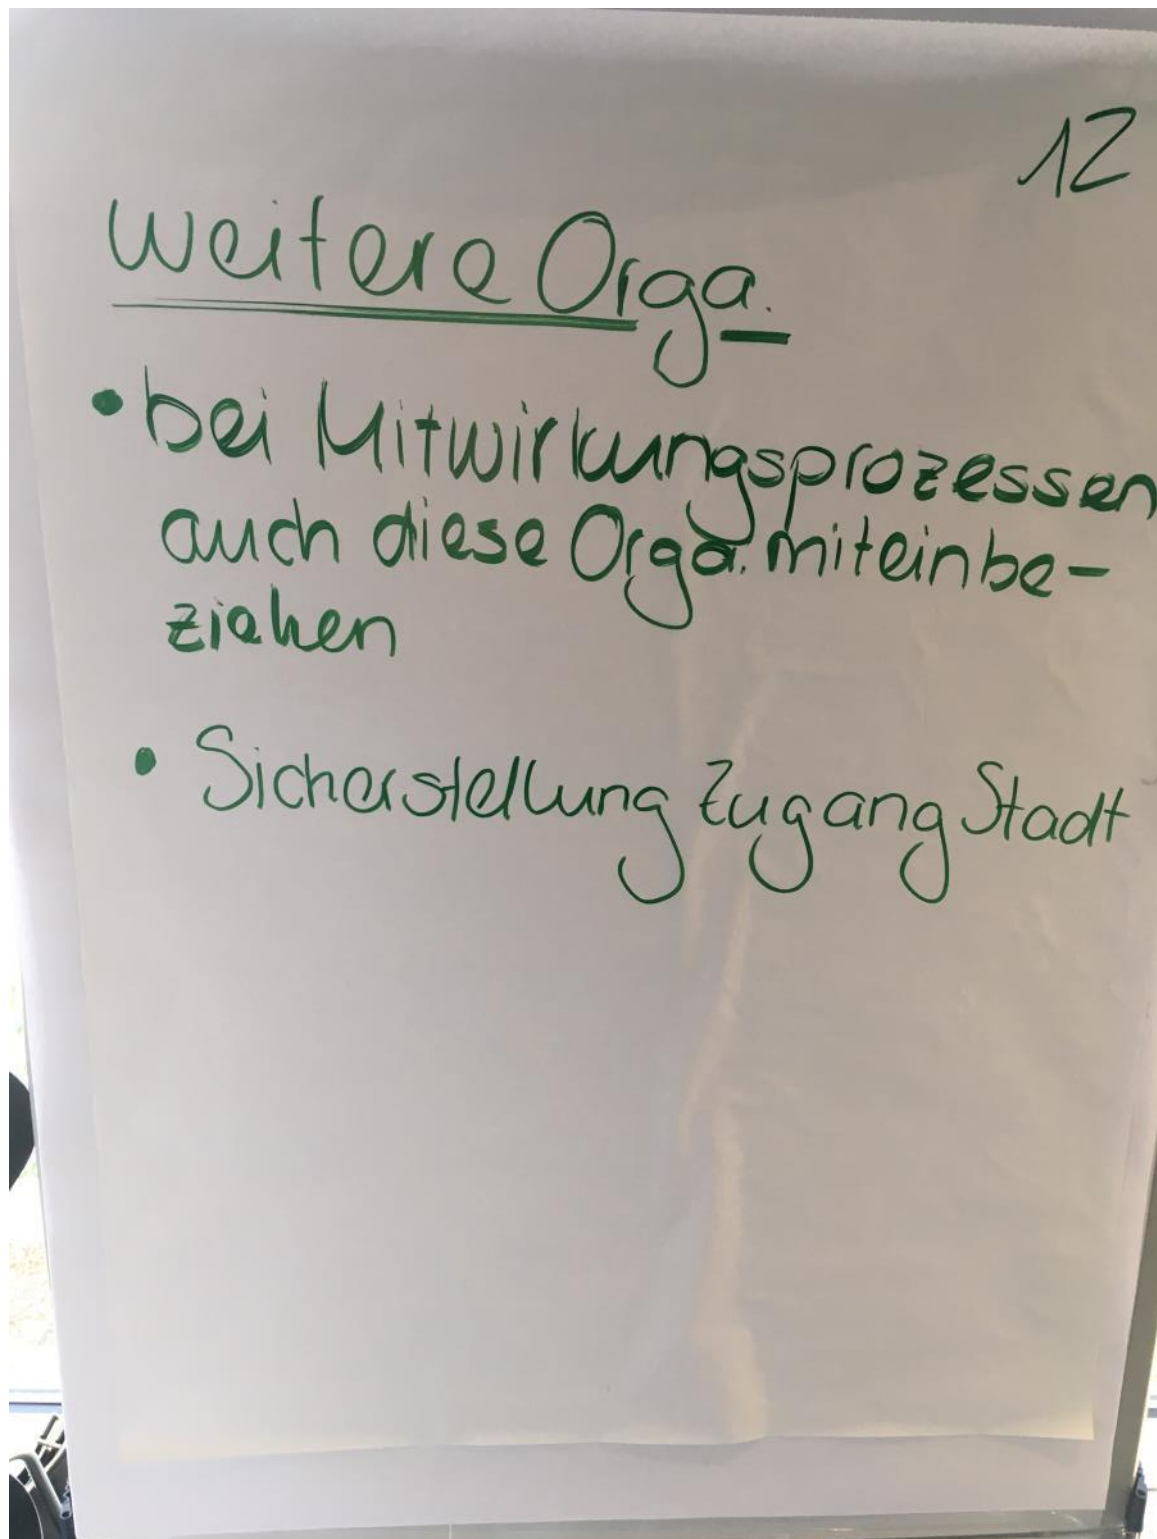 12
weitere Orga.
• bei Mitwirkungsprozessen
auch diese Orga. miteinbe-
ziehen
• Sicherstellung Zugang Stadt